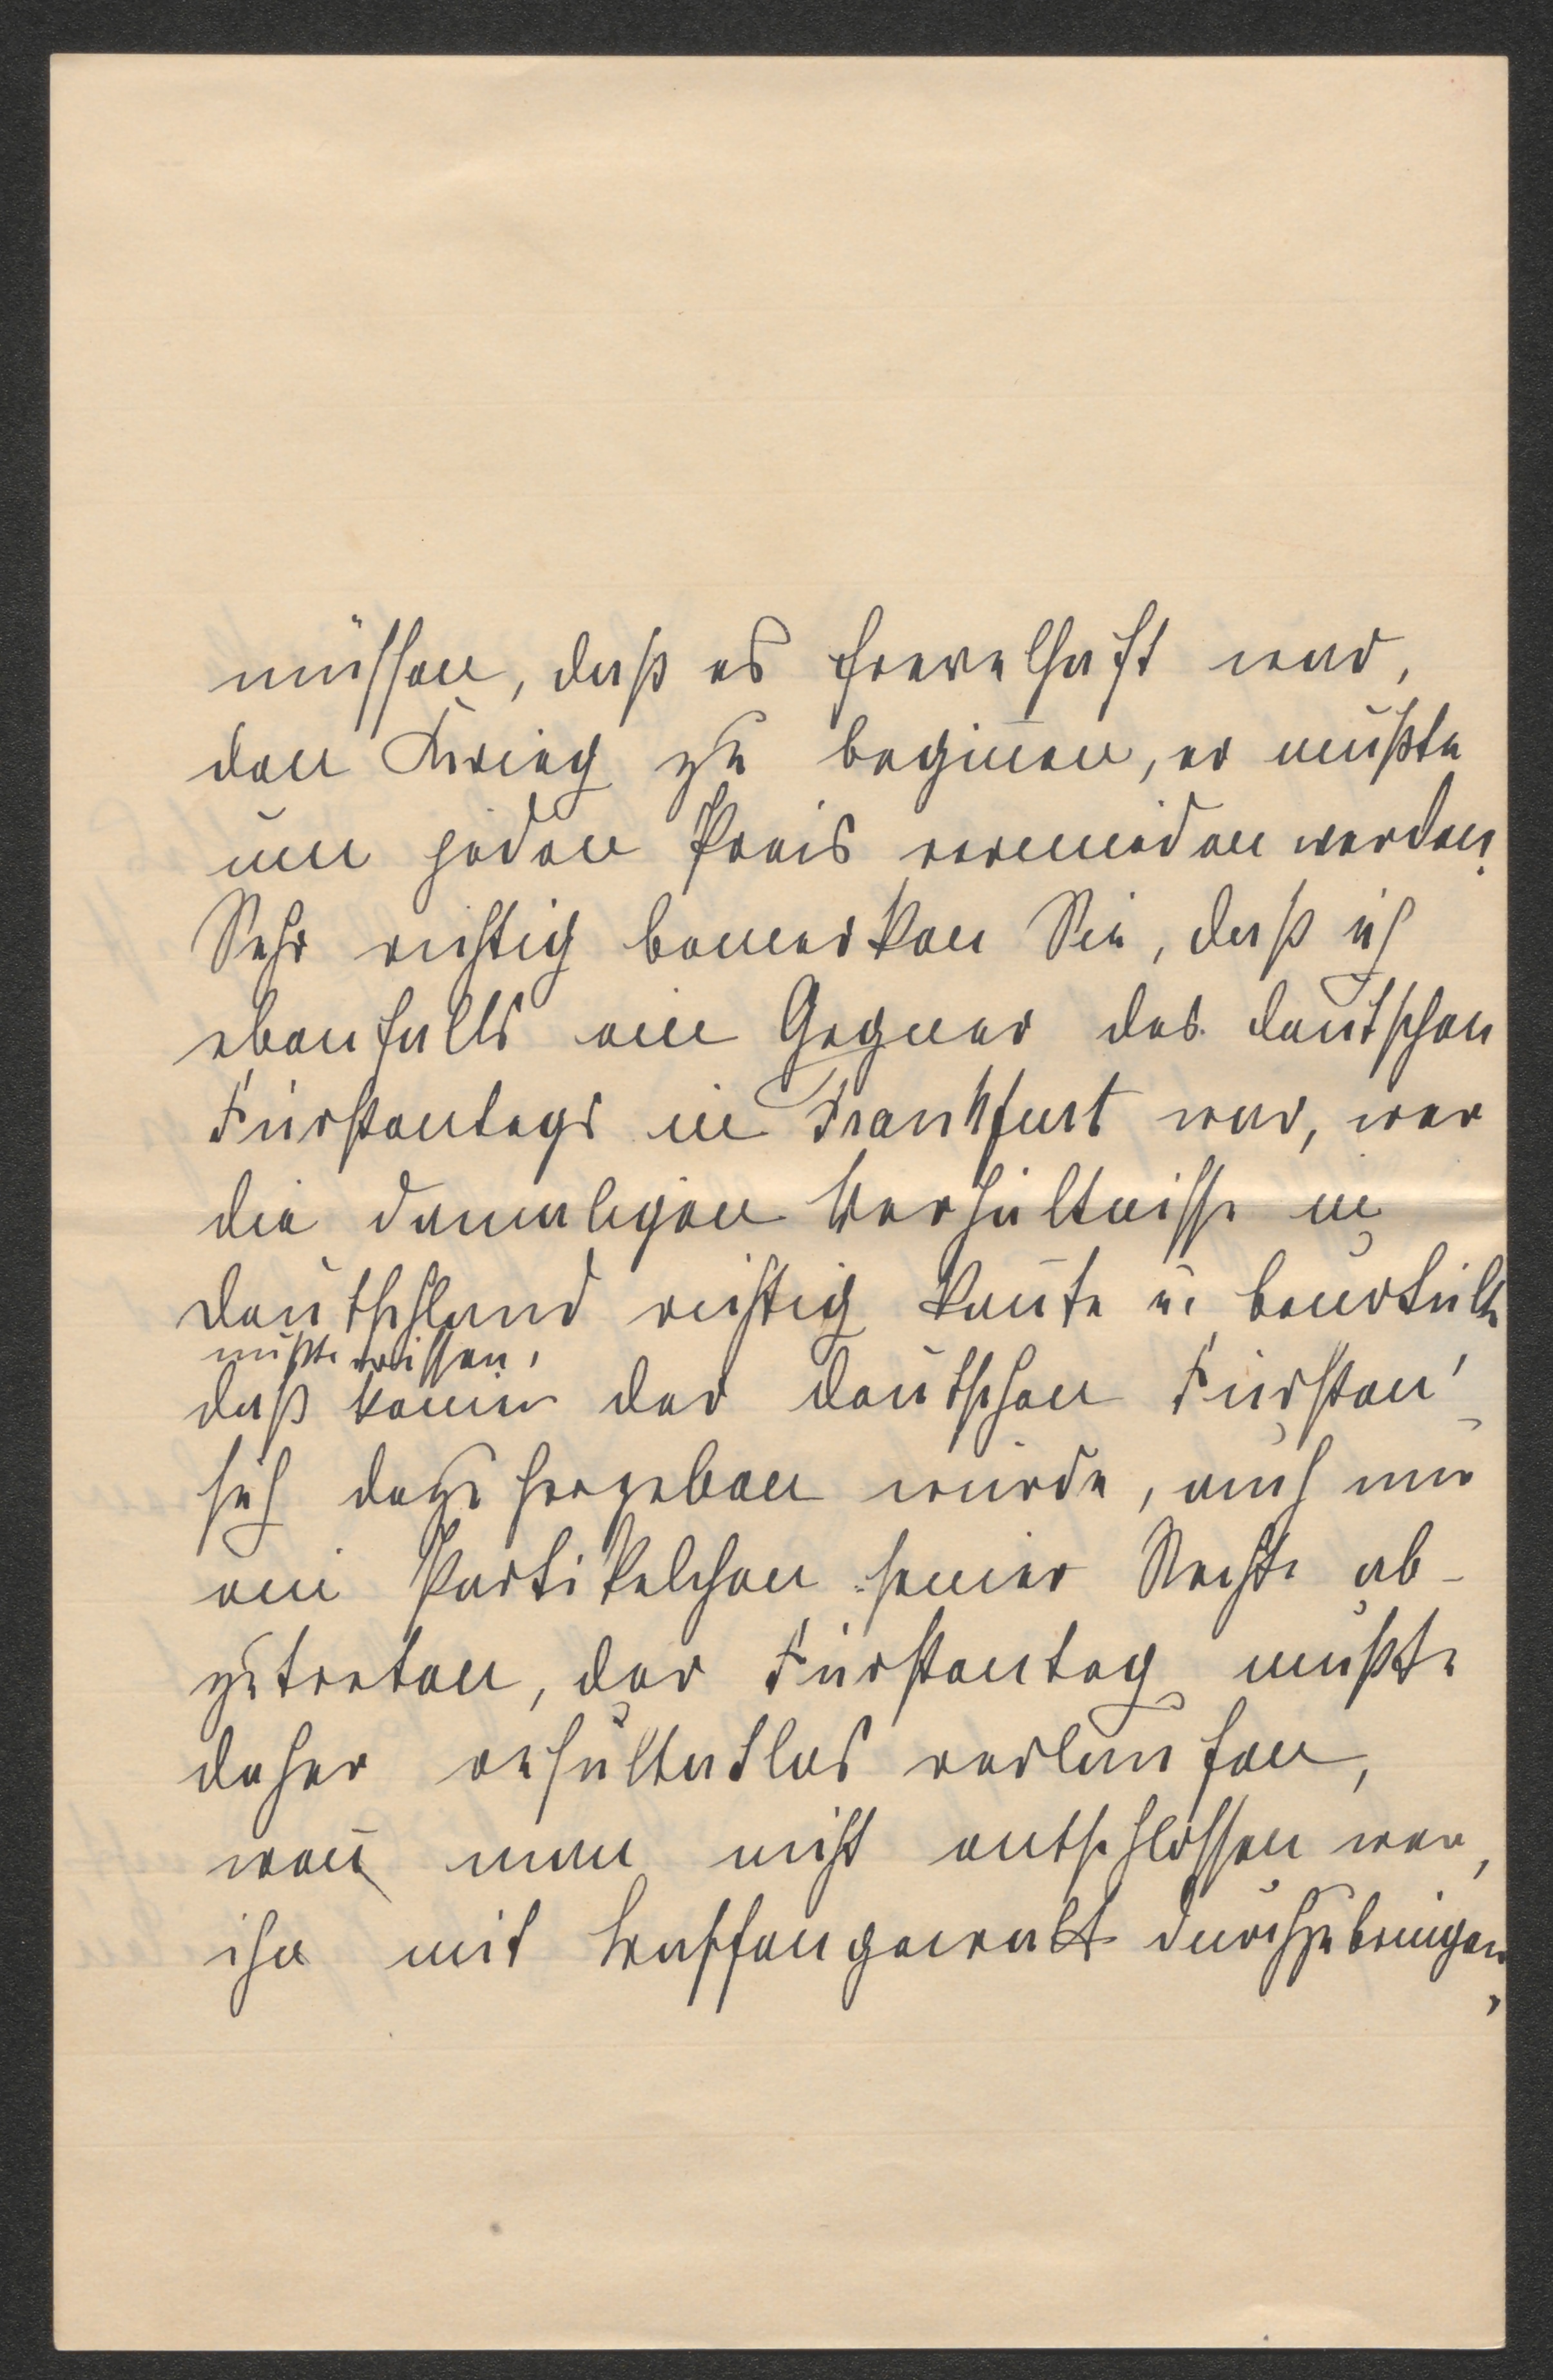 müssen, daß es frevelhaft war,
den Krieg zu beginen, er mußte
um jeden Preis vermieden werden.
Sehr richtig bemerken Sie, daß ich
ebenfalls ein Gegner des deutschen
Fürstentags in Frankfurt war, wer
die damaligen Verhältnisse in
Deutschland richtig kante u. beurteilte
mußte wissen,
daß keiner der deutschen Fürsten
sich dazu hergeben würde, auch nur
ein Partikelchen seiner Rechte ab-
zutreten, der Fürstentag mußte
daher resultatlos verlaufen,
wen man nicht entschlossen war,
ihn mit Waffengewalt durchzubringen,